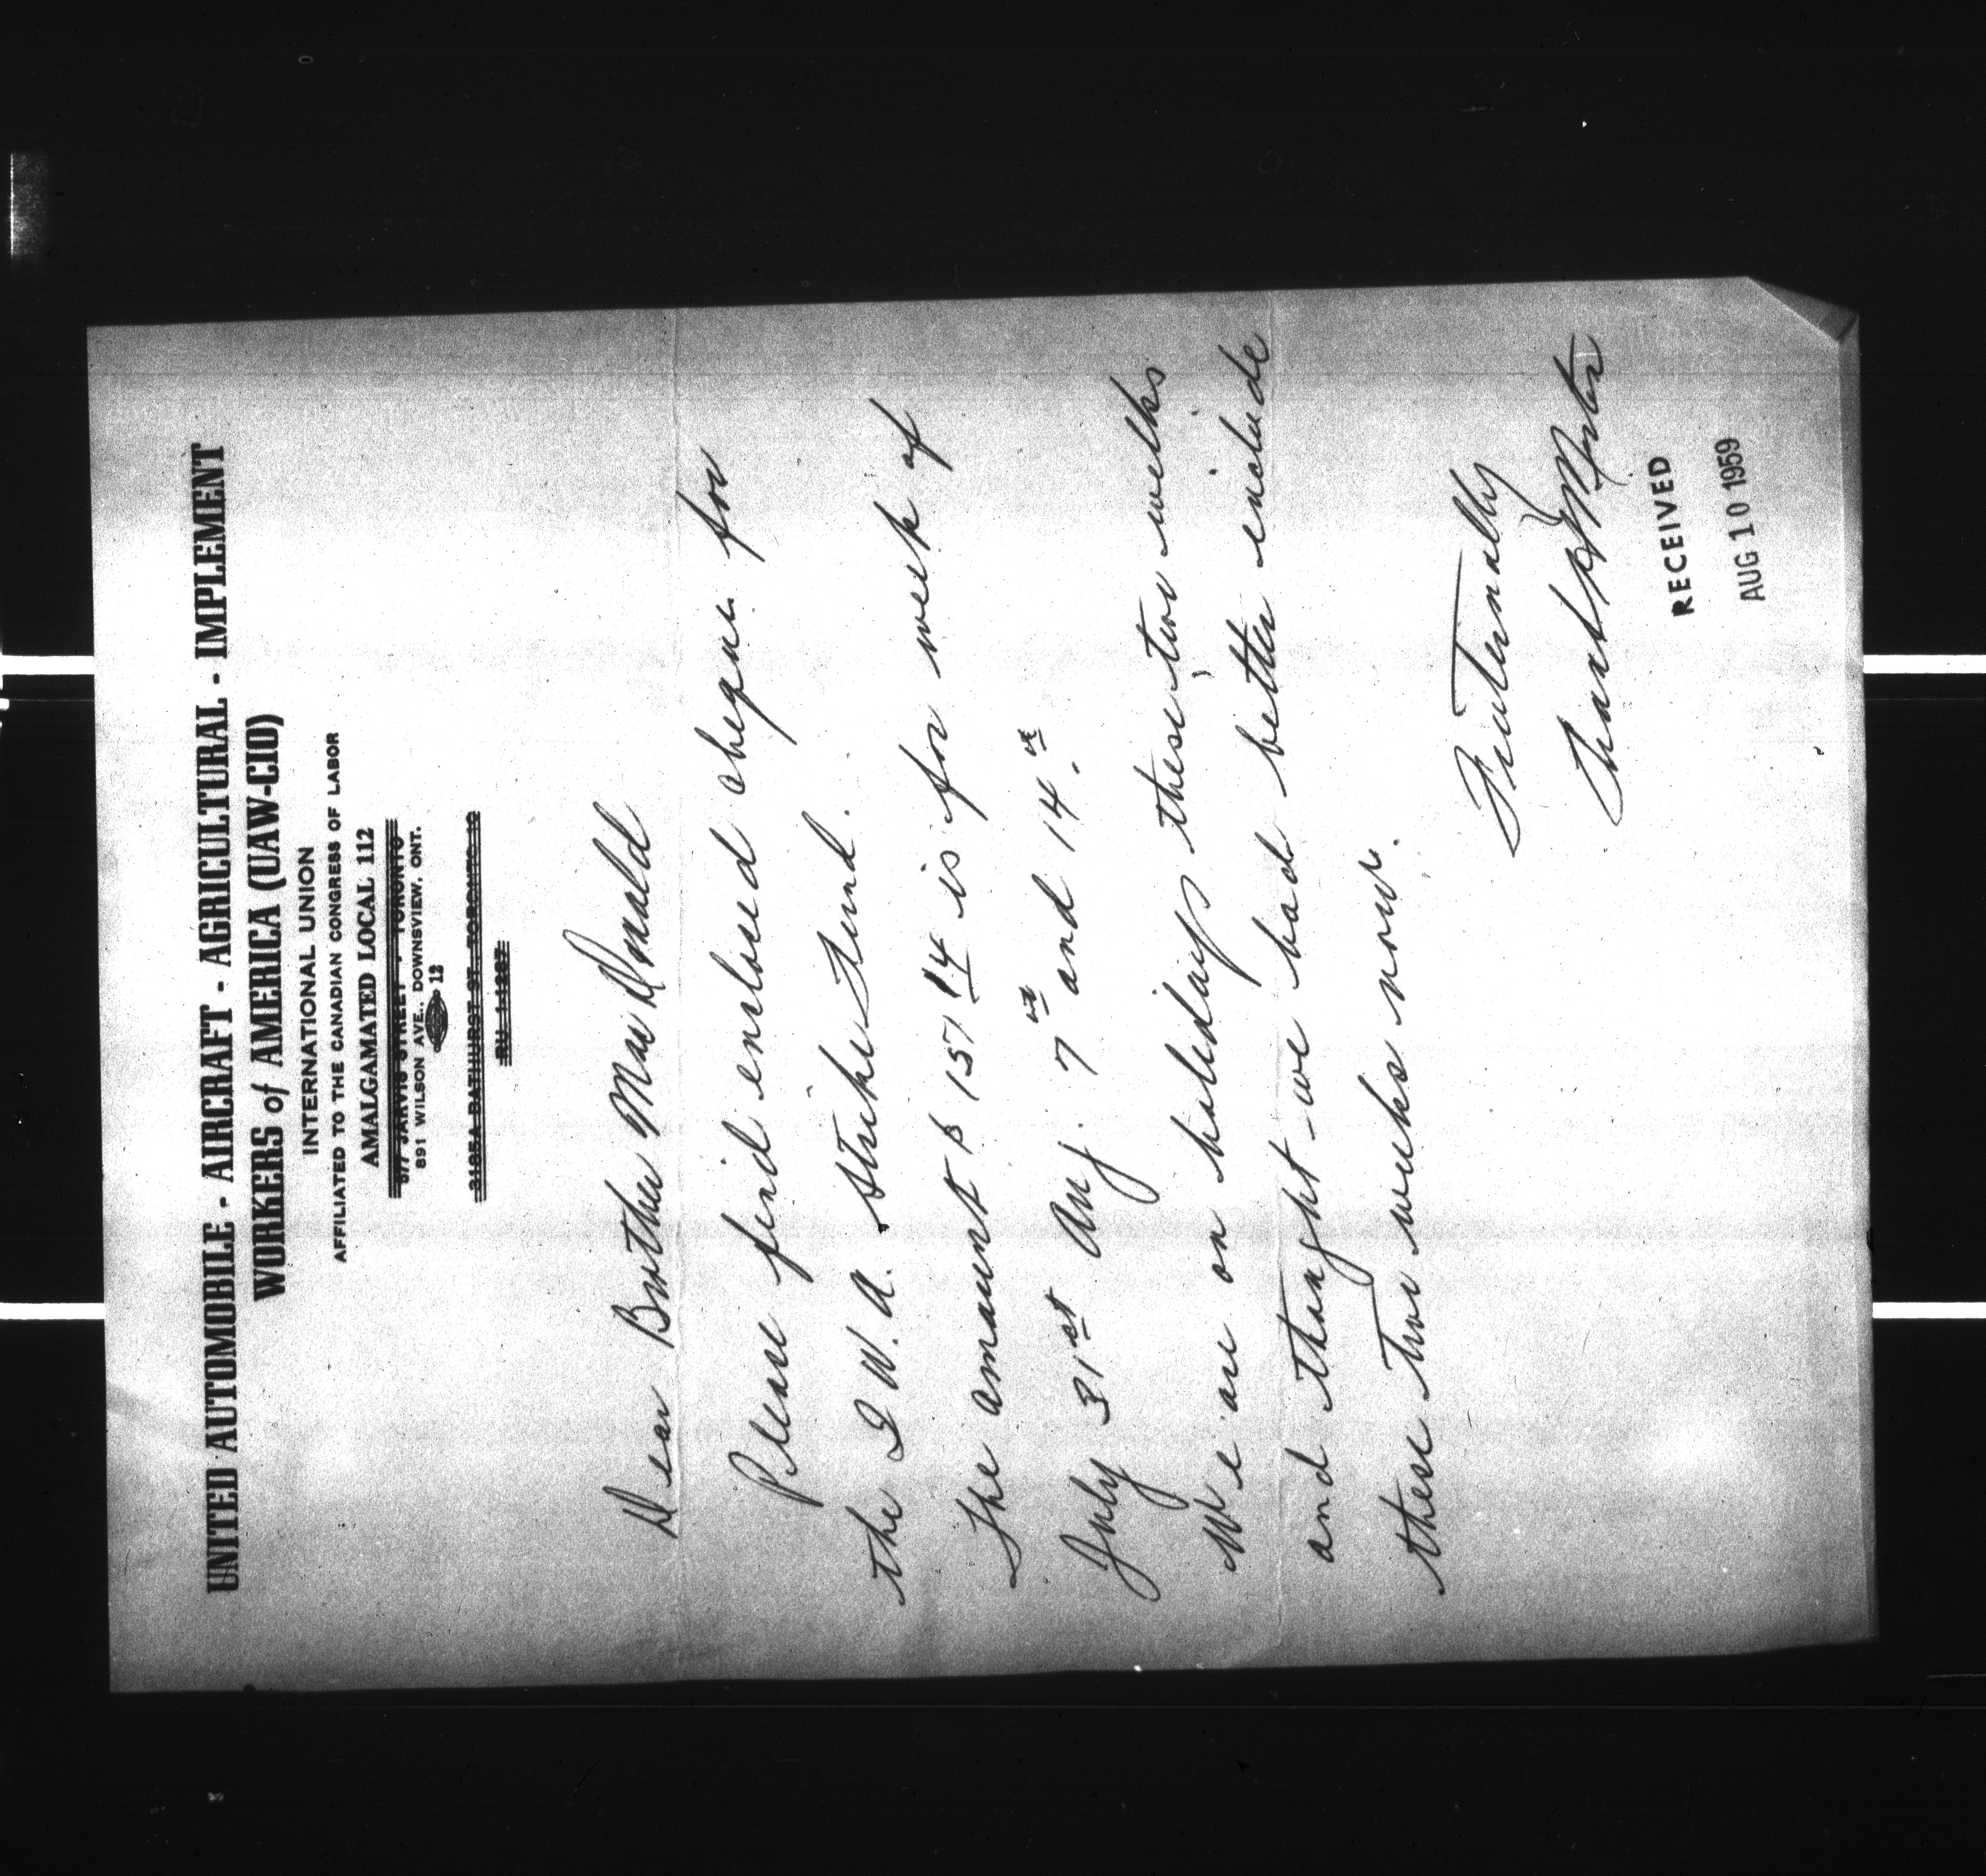 UNITED AUTOMOBILE - AIRCRAFT - AGRICULTURAL - IMPLEMENT
WORKERS of AMERICA (UAW-CIO)
INTERNATIONAL UNION
AFFILIATED TO THE CANADIAN CONGRESS OF LABOR
AMALGAMATED LOCAL 112
JARVIS STREET - TORONTO
891 WILSON AVE., DOWNSVIEW, ONT.
12
BATHURST ST. TORONTO
Dear Brother MacDonald
Please find enclosed cheque for
the I W. A. Strike Fund.
The amount $ 157 14 is for week of
July 31st Aug. 7th and 14th.
We are on holidays these two weeks
and thought we had better include
these two weeks now.
Fraternally
RECEIVED
AUG 10 1959